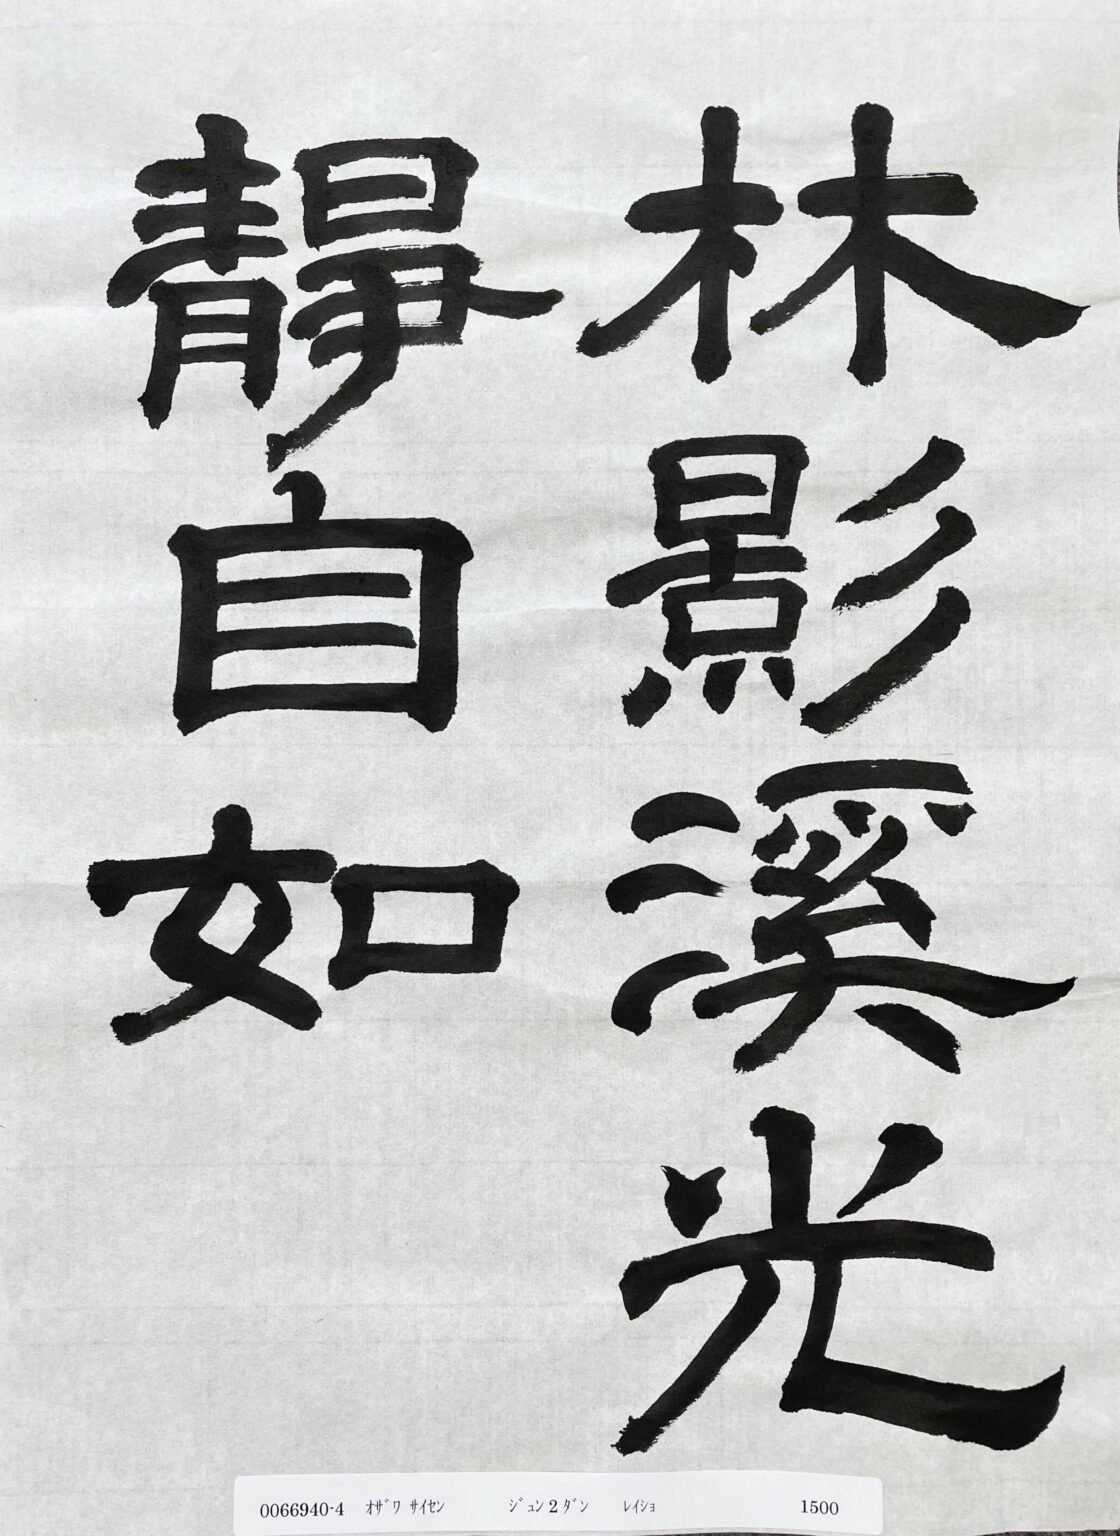 林影溪光
靜自如
0066940-4 ｵｻﾞﾜ ｻｲｾﾝ ｼﾞｭﾝ2ﾀﾞﾝ ﾚｲｼｮ 1500